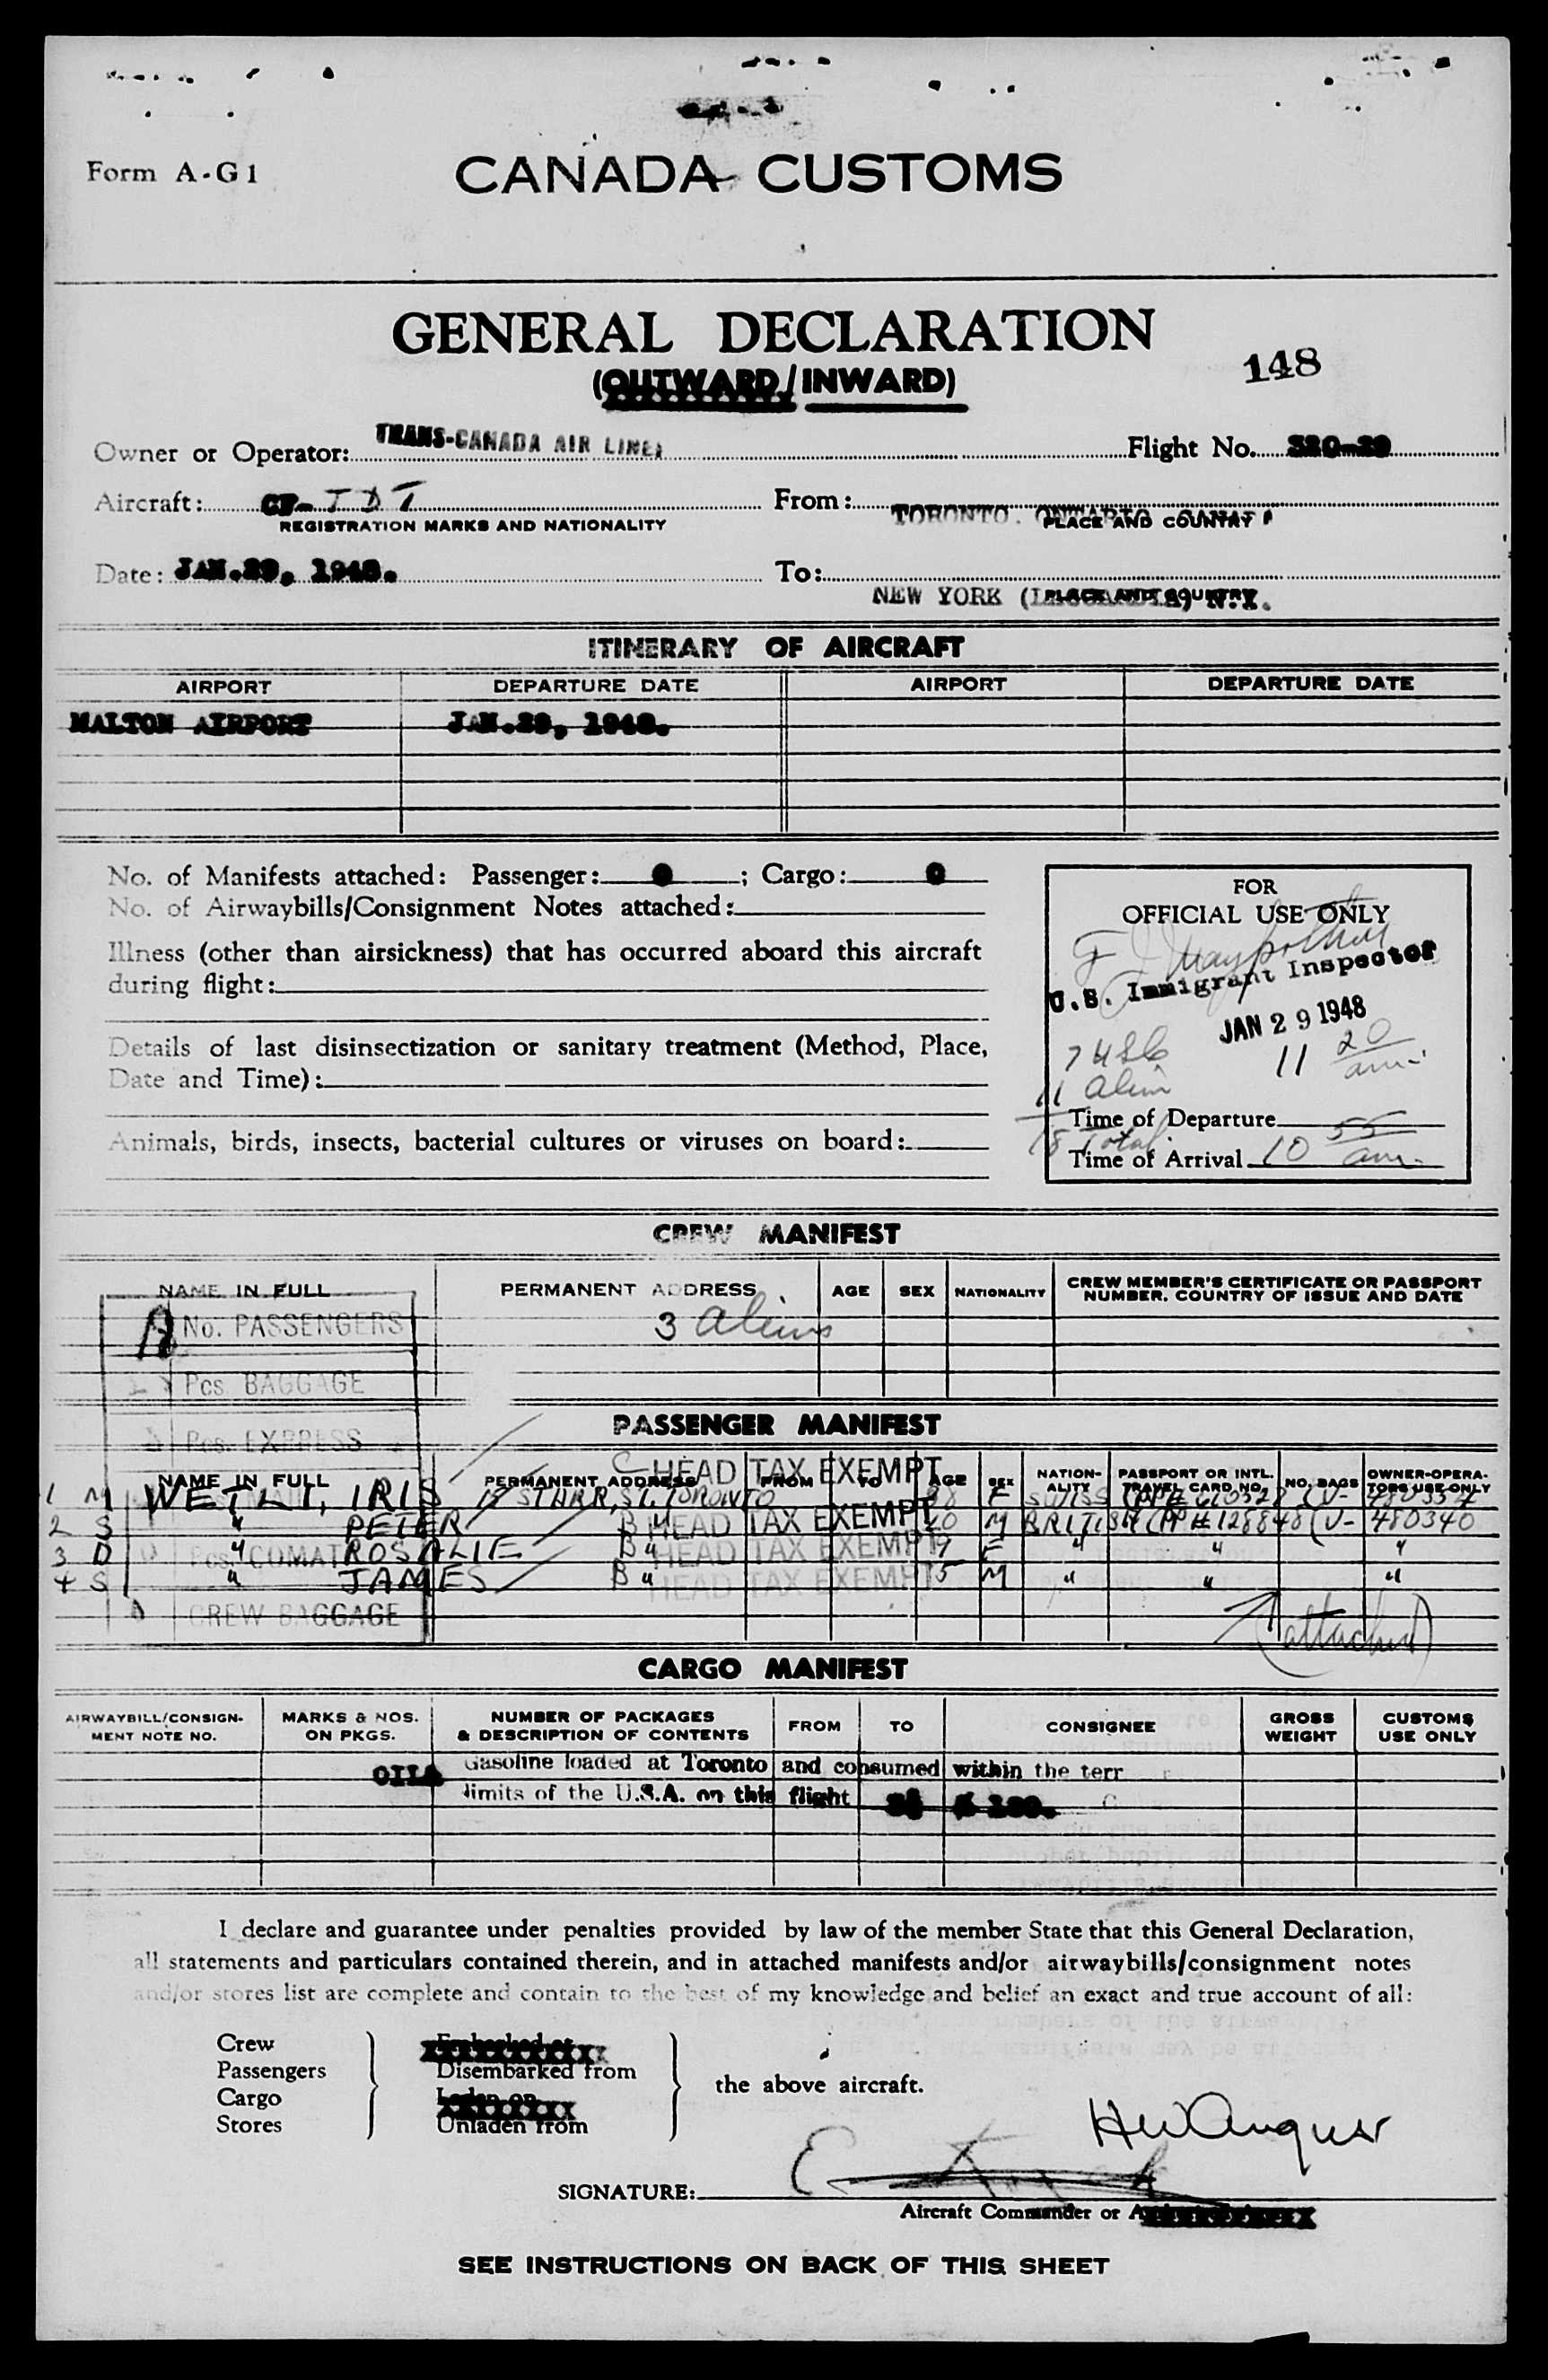 Form A-G1
CANADA CUSTOMS
GENERAL DECLARATION
(OUTWARD/INWARD)
148
Owner or Operator: TRANS-CANADA AIR LINES
Flight No. 320-29
Aircraft: CF- T D T
From: TORONTO, ONTARIO
REGISTRATION MARKS AND NATIONALITY
PLACE AND COUNTRY
Date: JAN.29, 1948.
To:
NEW YORK (LAGUARDIA) N.Y.
PLACE AND COUNTRY
ITINERARY OF AIRCRAFT
AIRPORT DEPARTURE DATE AIRPORT DEPARTURE DATE
MALTON AIRPORT JAN.29, 1948.
No. of Manifests attached: Passenger: 0; Cargo: 0
No. of Airwaybills/Consignment Notes attached:
Illness (other than airsickness) that has occurred aboard this aircraft
during flight:
Details of last disinsectization or sanitary treatment (Method, Place,
Date and Time):
Animals, birds, insects, bacterial cultures or viruses on board:
FOR
OFFICIAL USE ONLY
U.S. Immigrant Inspector
JAN 29 1948
11 20 am.
7 USC
11 alien
18 Total
Time of Departure
Time of Arrival 10 55 am.
CREW MANIFEST
NAME IN FULL PERMANENT ADDRESS AGE SEX NATIONALITY CREW MEMBER'S CERTIFICATE OR PASSPORT
NUMBER, COUNTRY OF ISSUE AND DATE
No. PASSENGERS
3 aliens
Pcs. BAGGAGE
PASSENGER MANIFEST
Pcs. EXPRESS
HEAD TAX EXEMPT
NAME IN FULL PERMANENT ADDRESS FROM TO AGE SEX NATION-
ALITY PASSPORT OR INTL.
TRAVEL CARD NO. NO. BAGS OWNER-OPERA-
TORS USE ONLY
1 M WETLI, IRIS STARR, ST. TORONTO 38 F SWISS (PP# (V-
2 S " PETER B " HEAD TAX EXEMPT M BRITISH (PP# 128848 (V- 480340
3 D " ROSALIE B " HEAD TAX EXEMPT F " " "
Pcs. COMAT
4 S " JAMES B " HEAD TAX EXEMPT 5 M " " "
CREW BAGGAGE
(attached)
CARGO MANIFEST
AIRWAYBILL/CONSIGN-
MENT NOTE NO. MARKS & NOS.
ON PKGS. NUMBER OF PACKAGES
& DESCRIPTION OF CONTENTS FROM TO CONSIGNEE GROSS
WEIGHT CUSTOMS
USE ONLY
Gasoline loaded at Toronto and consumed within the terr
limits of the U.S.A. on this flight
I declare and guarantee under penalties provided by law of the member State that this General Declaration,
all statements and particulars contained therein, and in attached manifests and/or airwaybills/consignment notes
and/or stores list are complete and contain to the best of my knowledge and belief an exact and true account of all:
Crew
Passengers
Cargo
Stores
Embarked at
Disembarked from
Laden on
Unladen from
the above aircraft.
HW Angus
SIGNATURE:
Aircraft Commander or
SEE INSTRUCTIONS ON BACK OF THIS SHEET